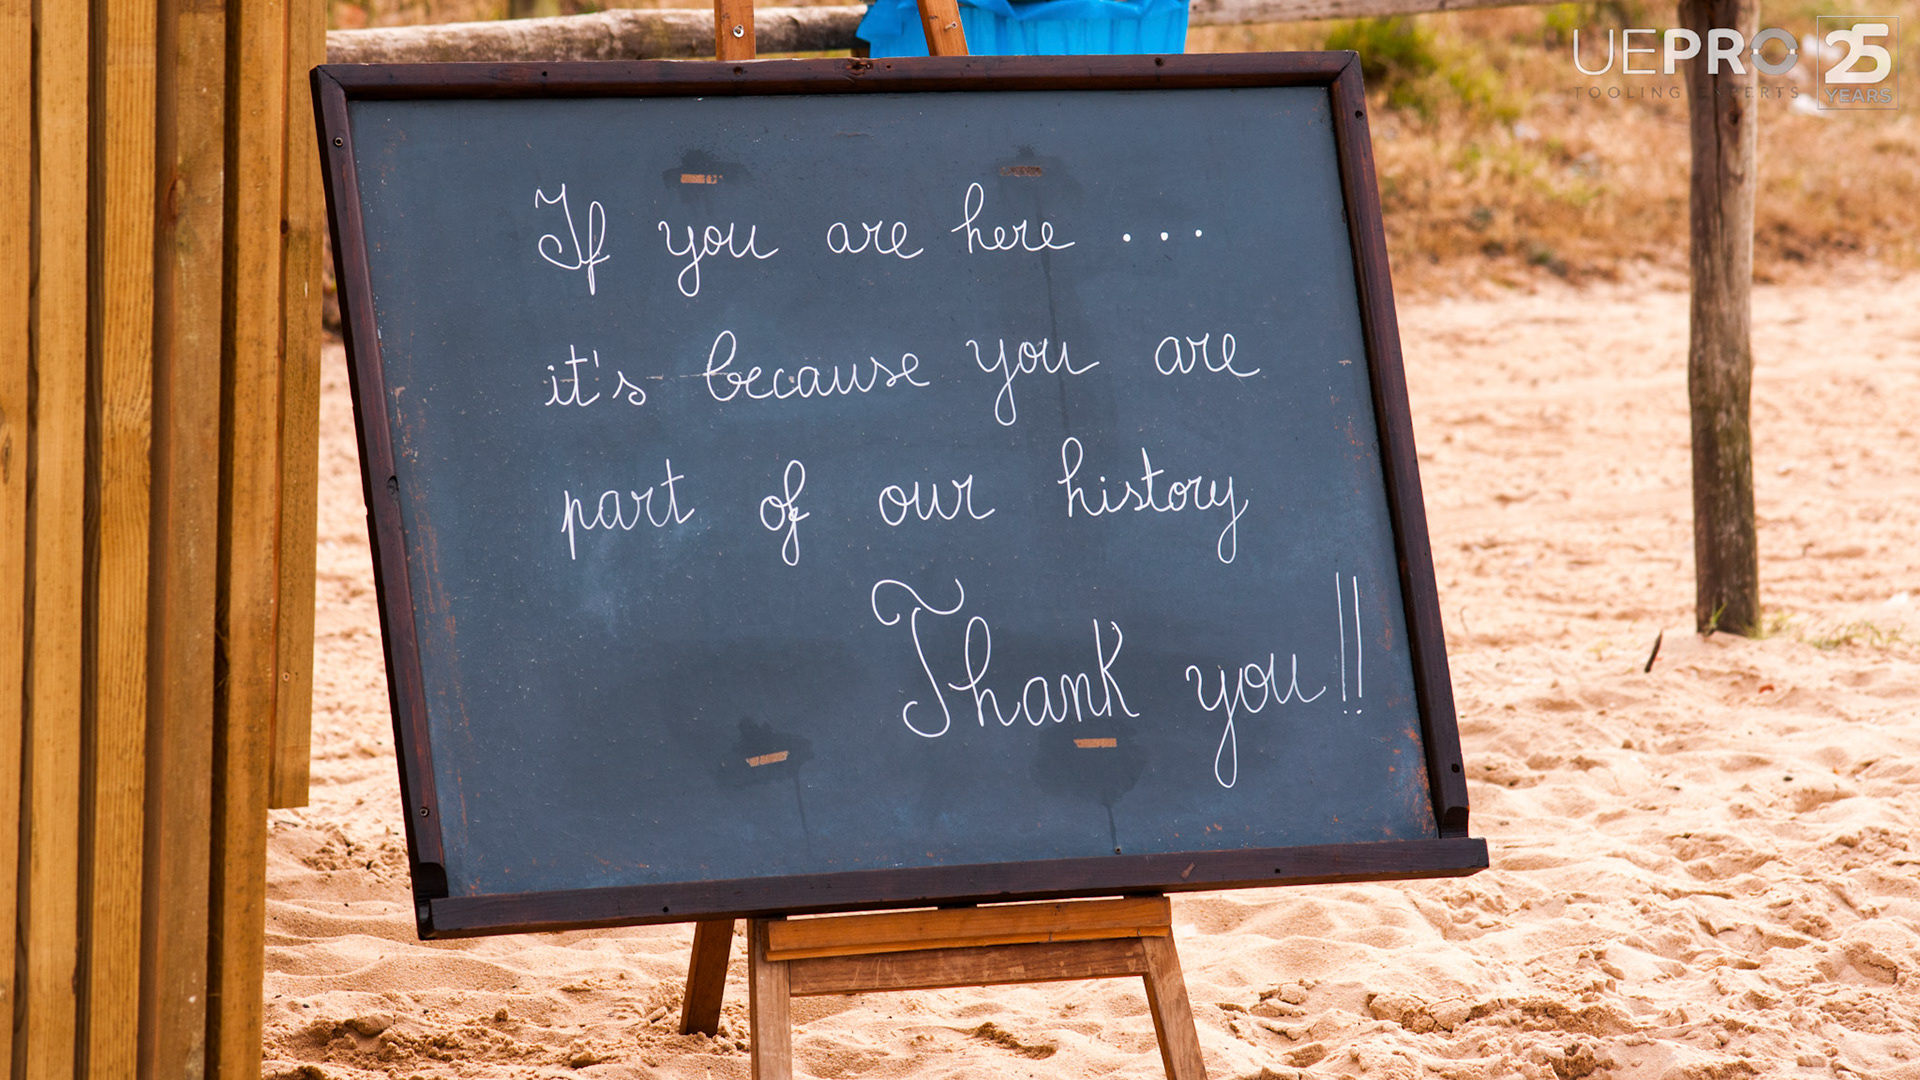 If you are here ...
it's because you are
part of our history
Thank you!!
UEPRO 25
TOOLING EXPERTS YEARS